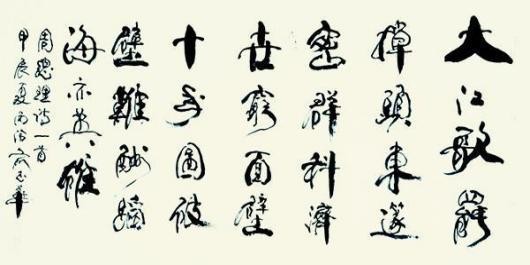 大江歌罷
掉頭東邃
密群科濟
世窮面壁
十年圖破
壁難酬蹈
海亦英雄
周總理詩一首
甲辰夏